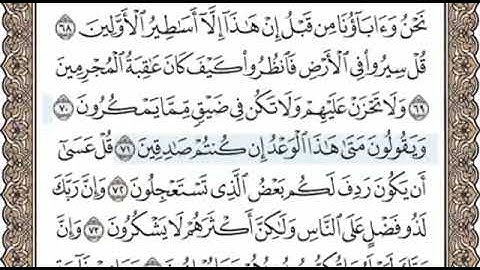 نَحْنُ وَءَابَآؤُنَا مِن قَبْلُ إِنْ هَٰذَآ إِلَّآ أَسَٰطِيرُ ٱلْأَوَّلِينَ ٦٨
قُلْ سِيرُوا۟ فِى ٱلْأَرْضِ فَٱنظُرُوا۟ كَيْفَ كَانَ عَٰقِبَةُ ٱلْمُجْرِمِينَ
٦٩ وَلَا تَحْزَنْ عَلَيْهِمْ وَلَا تَكُن فِى ضَيْقٍ مِّمَّا يَمْكُرُونَ ٧٠
وَيَقُولُونَ مَتَىٰ هَٰذَا ٱلْوَعْدُ إِن كُنتُمْ صَٰدِقِينَ ٧١ قُلْ عَسَىٰٓ
أَن يَكُونَ رَدِفَ لَكُم بَعْضُ ٱلَّذِى تَسْتَعْجِلُونَ ٧٢ وَإِنَّ رَبَّكَ
لَذُو فَضْلٍ عَلَى ٱلنَّاسِ وَلَٰكِنَّ أَكْثَرَهُمْ لَا يَشْكُرُونَ ٧٣ وَإِنَّ